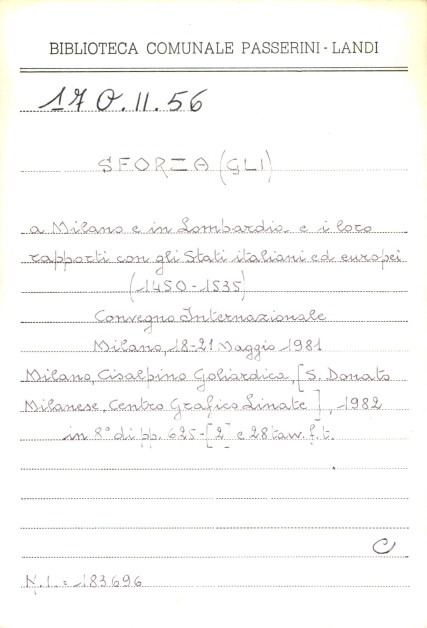 BIBLIOTECA COMUNALE PASSERINI - LANDI
170.II.56
SFORZA (GLI)
a Milano e in Lombardia e i loro
rapporti con gli Stati italiani ed europei
(1450-1535)
Convegno Internazionale
Milano, 18-21 Maggio 1981
Milano, Cisalpino Goliardica, [S. Donato
Milanese, Centro Grafico Linate], 1982
in 8° di pp. 625-[2] e 28 tav. f. t.
C
N.I.= 183696